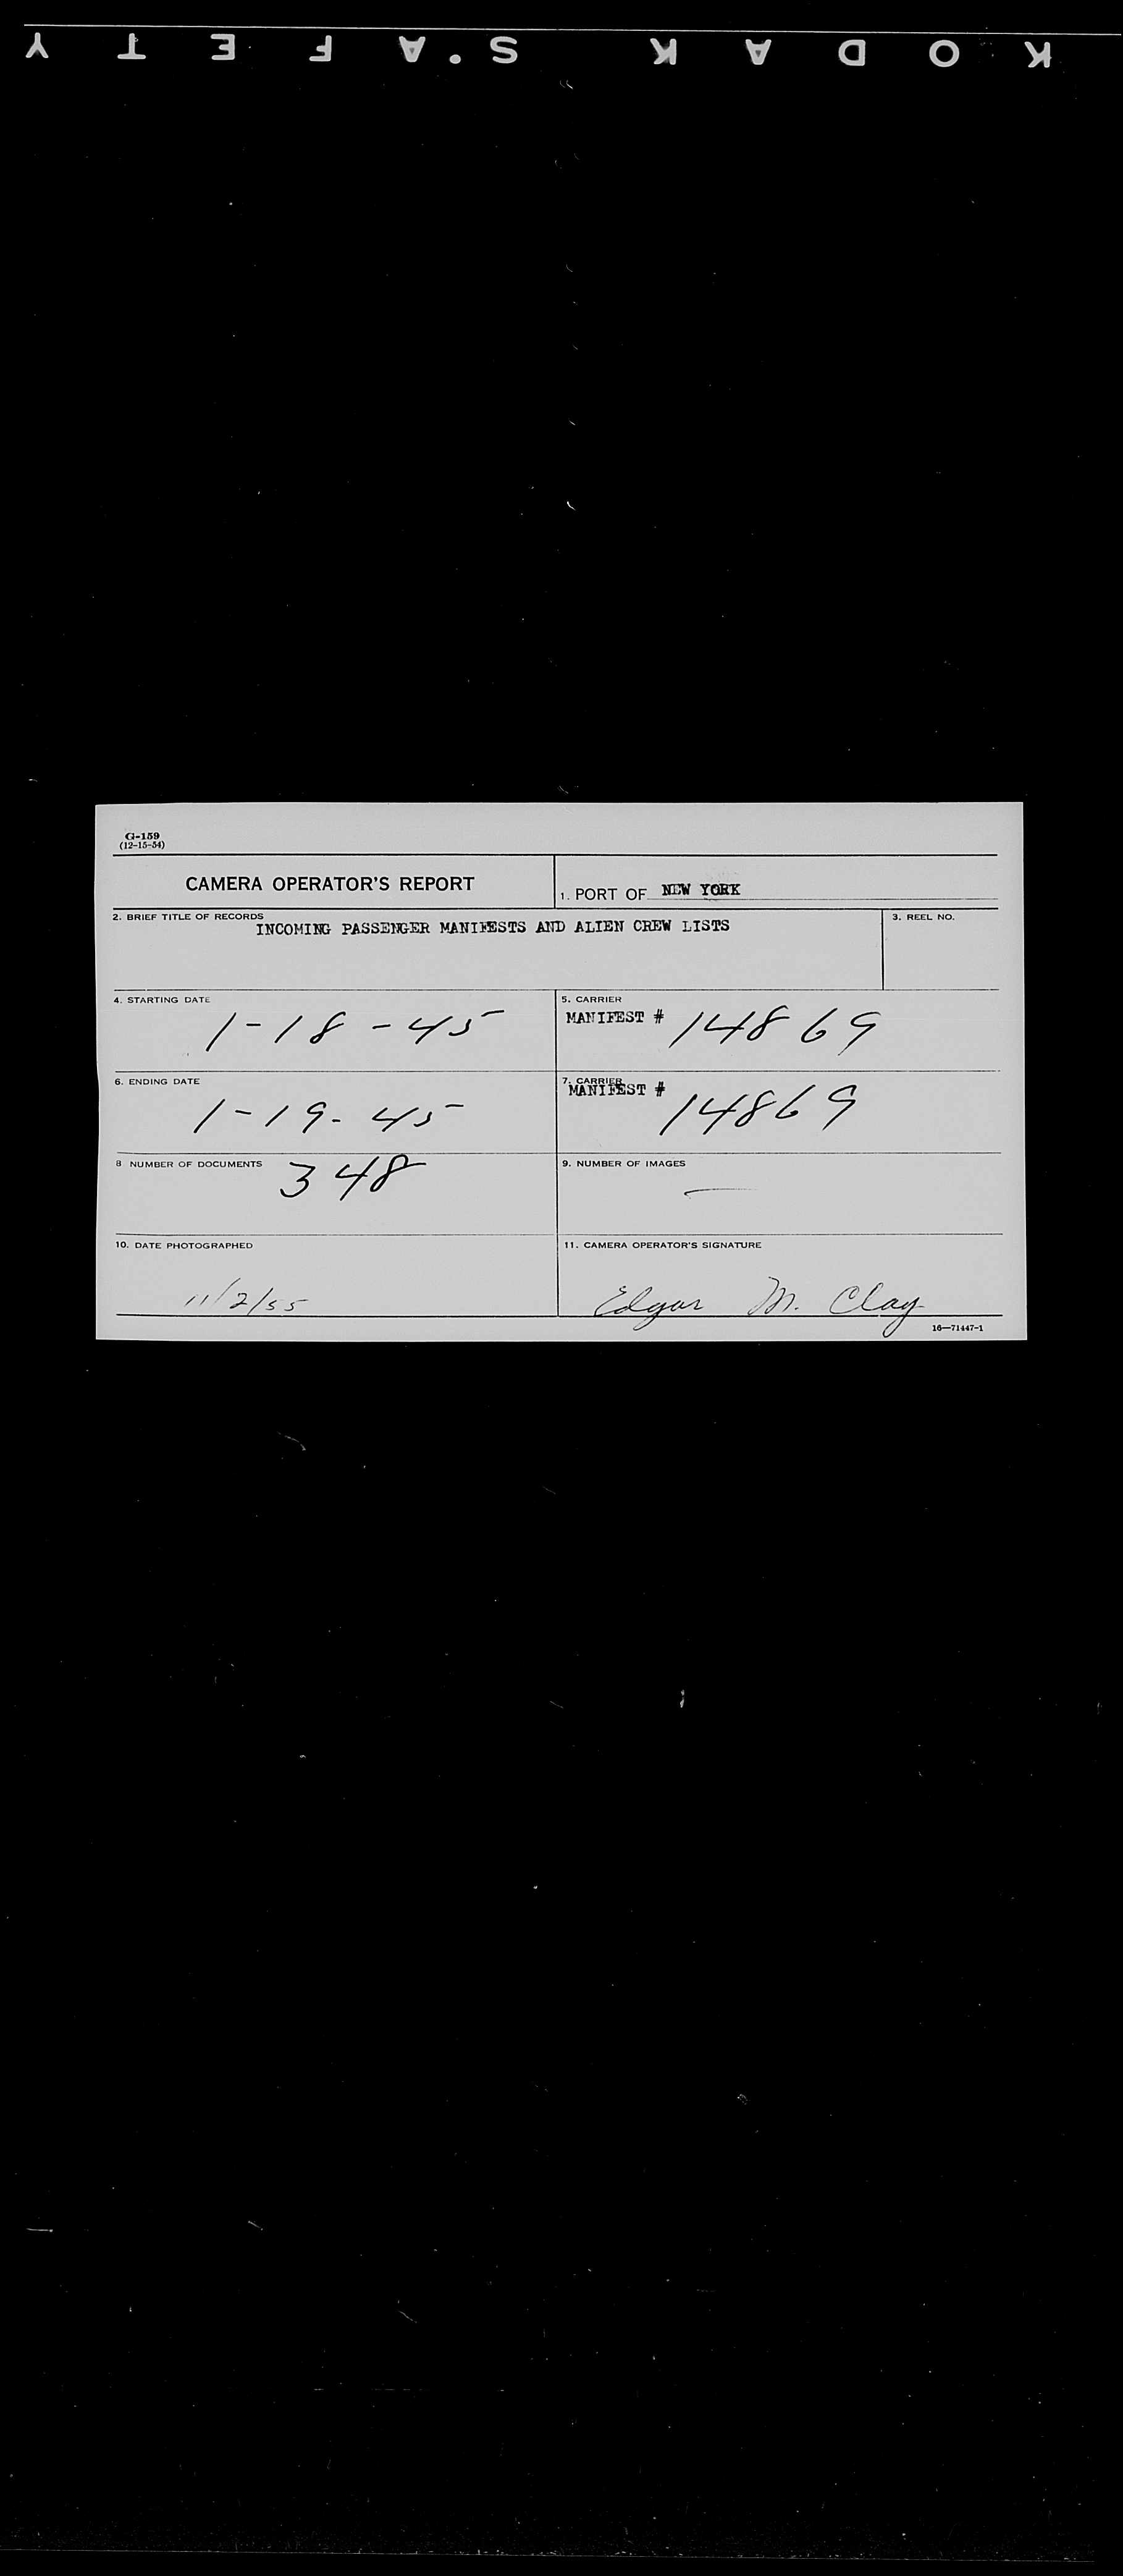 KODAK SAFETY
G-159
(12-15-54)
CAMERA OPERATOR'S REPORT
1. PORT OF NEW YORK
2. BRIEF TITLE OF RECORDS
INCOMING PASSENGER MANIFESTS AND ALIEN CREW LISTS
3. REEL NO.
4. STARTING DATE
1-18-45
5. CARRIER
MANIFEST # 14869
6. ENDING DATE
1-19-45
7. CARRIER
MANIFEST # 14869
8 NUMBER OF DOCUMENTS 348
9. NUMBER OF IMAGES
—
10. DATE PHOTOGRAPHED
11/2/55
11. CAMERA OPERATOR'S SIGNATURE
Edgar M. Clay
16—71447-1